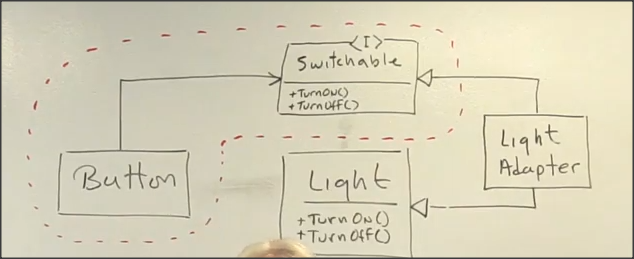 <I>
Switchable
+TurnOn()
+TurnOff()
Button
Light
+TurnOn()
+TurnOff()
Light
Adapter